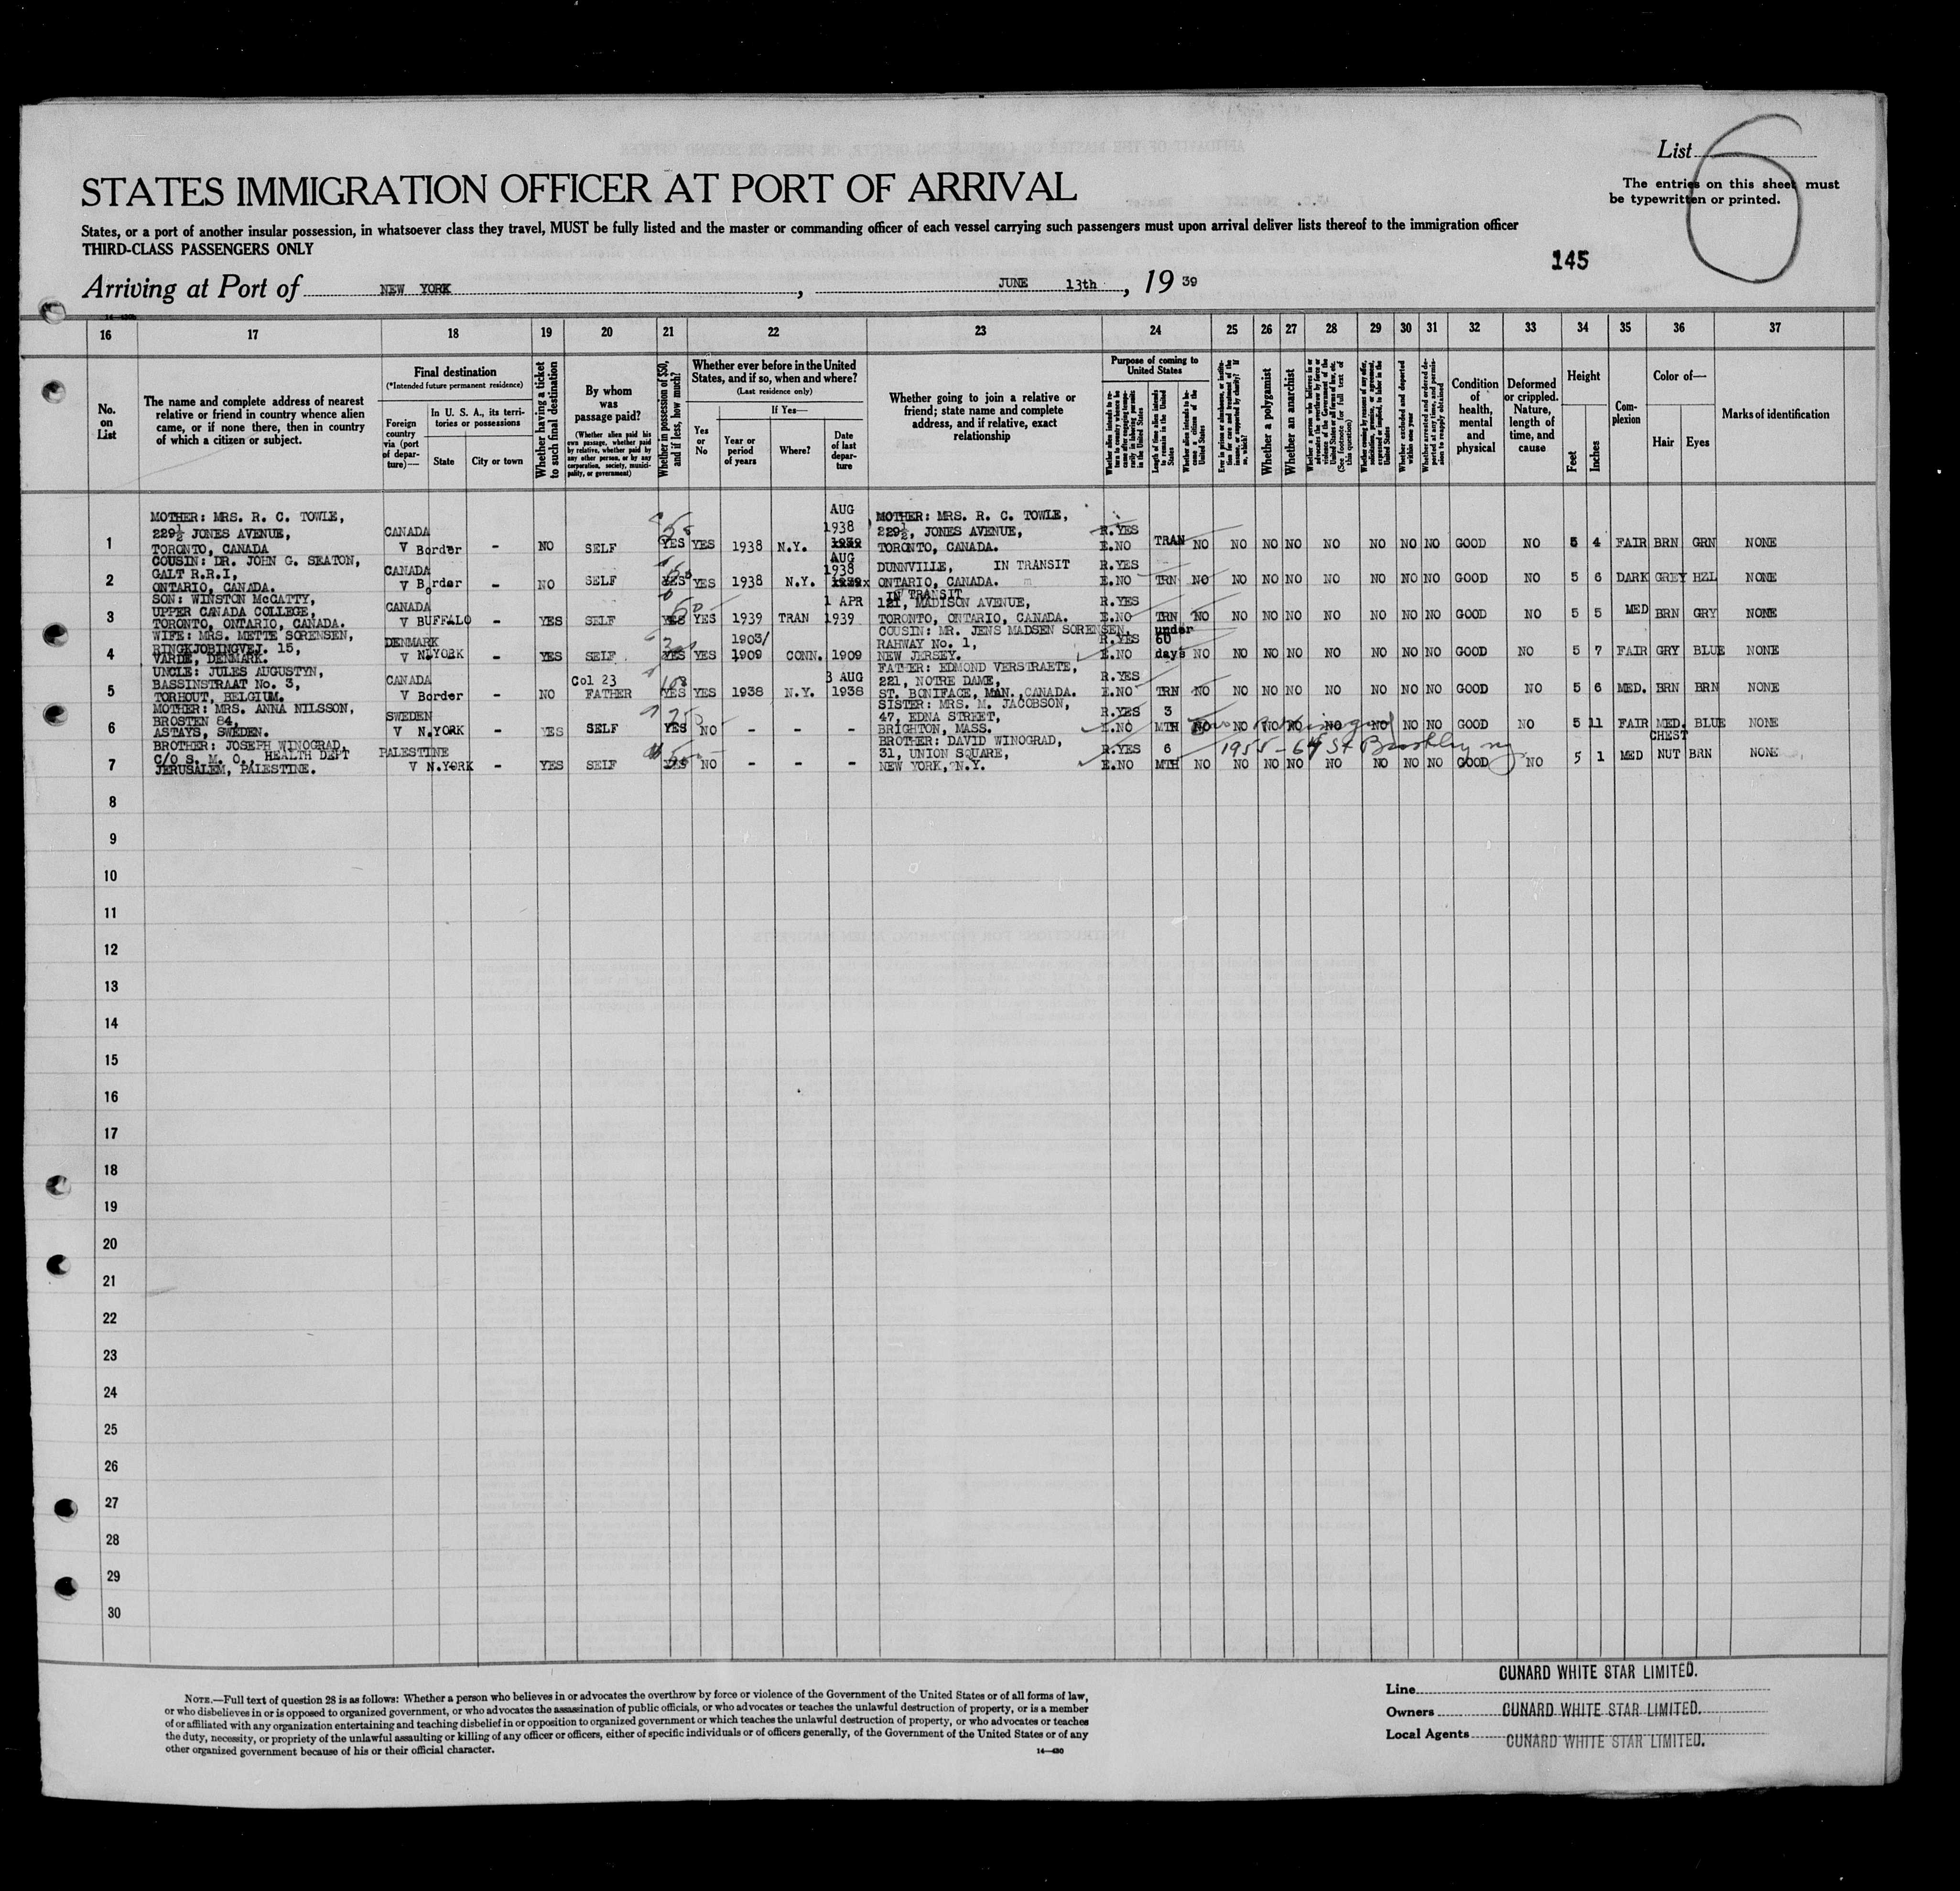 List
6
The entries on this sheet must
be typewritten or printed.
STATES IMMIGRATION OFFICER AT PORT OF ARRIVAL
States, or a port of another insular possession, in whatsoever class they travel, MUST be fully listed and the master or commanding officer of each vessel carrying such passengers must upon arrival deliver lists thereof to the immigration officer
THIRD-CLASS PASSENGERS ONLY
145
Arriving at Port of NEW YORK, JUNE 13th, 19 39
16 17 18 19 20 21 22 23 24 25 26 27 28 29 30 31 32 33 34 35 36 37
No. on List
The name and complete address of nearest relative or friend in country whence alien came, or if none there, then in country of which a citizen or subject.
Final destination
(*Intended future permanent residence)
Foreign country via (port of departure)—
In U. S. A., its territories or possessions
State
City or town
Whether having a ticket to such final destination
By whom was passage paid?
(Whether alien paid his own passage, whether paid by relative, whether paid by any other person, or by any corporation, society, municipality, or government)
Whether in possession of $50, and if less, how much?
Whether ever before in the United States, and if so, when and where?
(Last residence only)
Yes or No
If Yes—
Year or period of years
Where?
Date of last departure
Whether going to join a relative or friend; state name and complete address, and if relative, exact relationship
Purpose of coming to United States
Length of time alien intends to remain in the United States
Whether alien intends to become a citizen of the United States
Whether a polygamist
Whether an anarchist
(See footnote for full text of this question)
Whether excluded and deported within one year
Condition of health, mental and physical
Deformed or crippled. Nature, length of time, and cause
Height
Feet
Inches
Complexion
Color of—
Hair
Eyes
Marks of identification
1 MOTHER: MRS. R. C. TOWLE, 229½ JONES AVENUE, TORONTO, CANADA CANADA V Border - NO SELF YES YES 1938 N.Y. AUG 1938 MOTHER: MRS. R. C. TOWLE, 229½, JONES AVENUE, TORONTO, CANADA. R.YES E.NO TRAN NO NO NO NO NO NO NO NO GOOD NO 5 4 FAIR BRN GRN NONE
2 COUSIN: DR. JOHN G. SEATON, GALT R.R.I, ONTARIO, CANADA. CANADA V Border - NO SELF YES YES 1938 N.Y. AUG 1938 DUNNVILLE, IN TRANSIT ONTARIO, CANADA. R.YES E.NO TRN NO NO NO NO NO NO NO NO GOOD NO 5 6 DARK GREY HZL NONE
3 SON: WINSTON McCATTY, UPPER CANADA COLLEGE, TORONTO, ONTARIO, CANADA. CANADA V BUFFALO - YES SELF YES YES 1939 TRAN 1 APR 1939 IN TRANSIT 121, MADISON AVENUE, TORONTO, ONTARIO, CANADA. R.YES E.NO TRN NO NO NO NO NO NO NO NO GOOD NO 5 5 MED BRN GRY NONE
4 WIFE: MRS. METTE SORENSEN, RINGKJOBINGVEJ. 15, VARDE, DENMARK. DENMARK V N.YORK - YES SELF YES YES 1903/1909 CONN. 1909 COUSIN: MR. JENS MADSEN SORENSEN. RAHWAY No. 1, NEW JERSEY. R.YES E.NO under 60 days NO NO NO NO NO NO NO NO GOOD NO 5 7 FAIR GRY BLUE NONE
5 UNCLE: JULES AUGUSTYN, BASSINSTRAAT No. 3, TORHOUT, BELGIUM. CANADA V Border - NO Col 23 FATHER YES YES 1938 N.Y. 3 AUG 1938 FATHER: EDMOND VERSTRAETE, 221, NOTRE DAME, ST. BONIFACE, MAN., CANADA. R.YES E.NO TRN NO NO NO NO NO NO NO NO GOOD NO 5 6 MED. BRN BRN NONE
6 MOTHER: MRS. ANNA NILSSON, BROSTEN 84, ASTAYS, SWEDEN. SWEDEN V N.YORK - YES SELF YES NO - - - SISTER: MRS. M. JACOBSON, 47, EDNA STREET, BRIGHTON, MASS. R.YES E.NO 3 MTH NO NO NO NO NO NO NO NO GOOD NO 5 11 FAIR MED. BLUE NONE
7 BROTHER: JOSEPH WINOGRAD, C/O S. M. O., HEALTH DEPT JERUSALEM, PALESTINE. PALESTINE V N.YORK - YES SELF YES NO - - - BROTHER: DAVID WINOGRAD, 31, UNION SQUARE, NEW YORK, N.Y. R.YES E.NO 6 MTH NO NO NO NO NO NO NO NO GOOD NO 5 1 MED CHEST NUT BRN NONE
1955 - 64 St Brooklyn ny
8
9
10
11
12
13
14
15
16
17
18
19
20
21
22
23
24
25
26
27
28
29
30
NOTE.—Full text of question 28 is as follows: Whether a person who believes in or advocates the overthrow by force or violence of the Government of the United States or of all forms of law,
or who disbelieves in or is opposed to organized government, or who advocates the assassination of public officials, or who advocates or teaches the unlawful destruction of property, or is a member
of or affiliated with any organization entertaining and teaching disbelief in or opposition to organized government or which teaches the unlawful destruction of property, or who advocates or teaches
the duty, necessity, or propriety of the unlawful assaulting or killing of any officer or officers, either of specific individuals or of officers generally, of the Government of the United States or of any
other organized government because of his or their official character.
14—430
Line CUNARD WHITE STAR LIMITED.
Owners CUNARD WHITE STAR LIMITED.
Local Agents CUNARD WHITE STAR LIMITED.